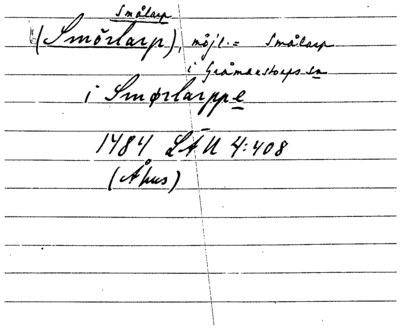 Smålarp
(Smörlarp), möjl. = Smålarp
i Gråmanstorps sn
i Smørlarppe
1484 LÄU 4:408
(Åhus)